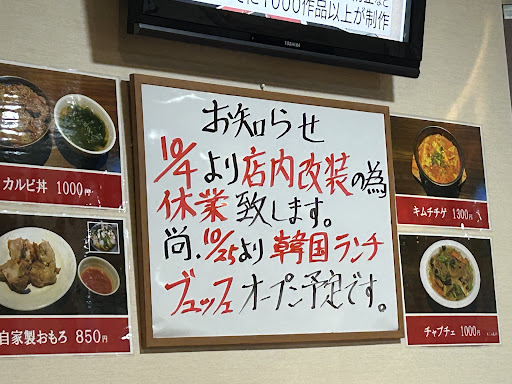 に1000作品以上が制作
TOSHIBA
お知らせ
10/4より店内改装の為
休業致します。
尚、10/25より韓国ランチ
ブュッフェオープン予定です。
カルビ丼 1000円
自家製おもろ 850円
キムチチゲ 1300円
チャプチェ 1000円